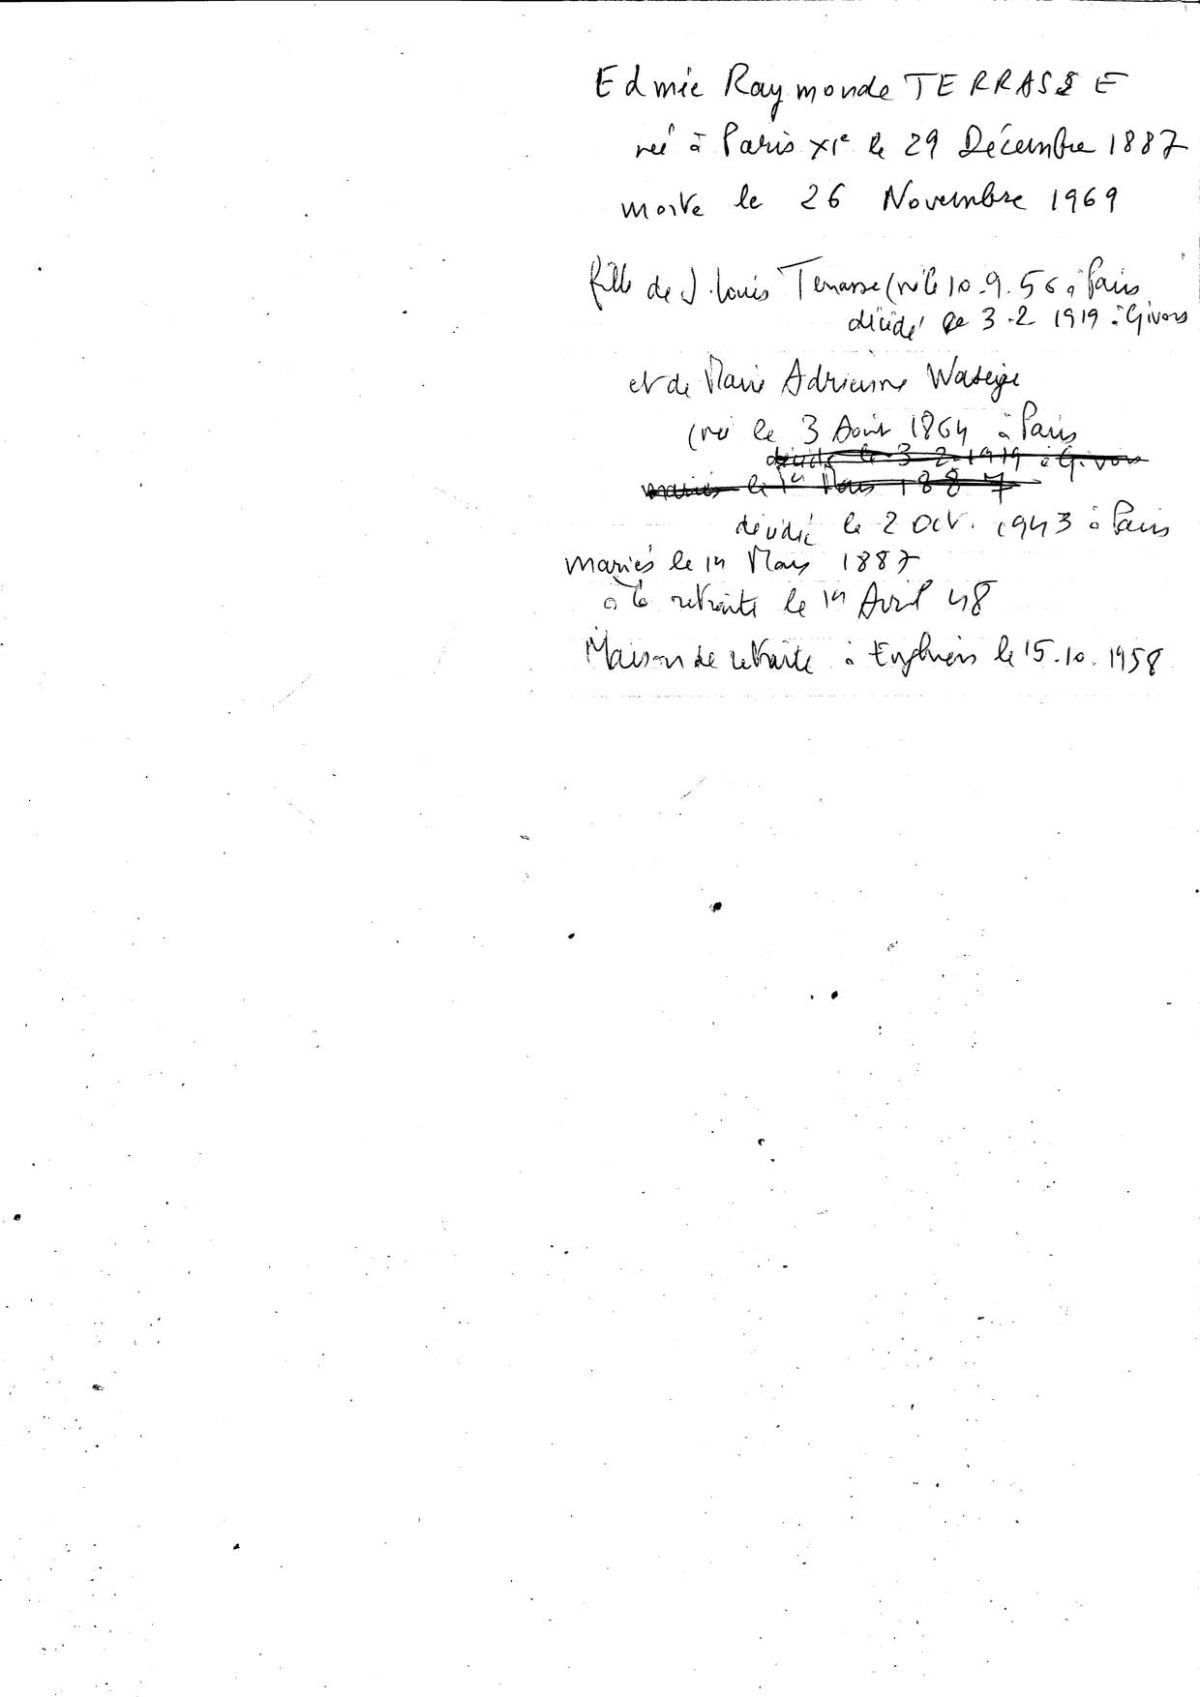 Edmée Raymonde TERRASSE
né à Paris XIe le 29 Décembre 1887
morte le 26 Novembre 1969
fille de J. Louis Terrasse (né le 10.9.56 à Paris
décidé le 3.2 1919 à Givors
et de Marie Adrienne Waseige
(né le 3 Août 1864 à Paris
décidé le 3 2 1919 à Givors
mariés le 1er Mars 1887
décidé le 2 Oct. 1943 à Paris
mariés le 1er Mars 1887
à la retraite le 1er Avril 48
Maison de retraite à Enghien le 15.10.1958